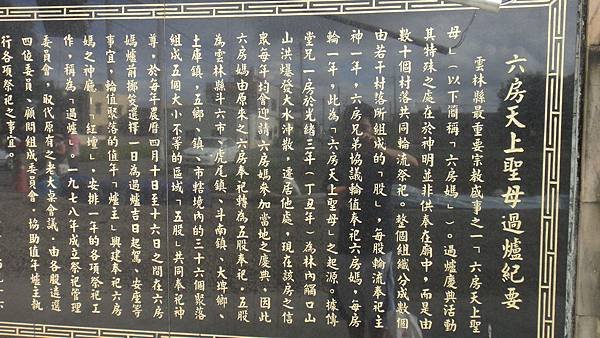 六房天上聖母過爐紀要
雲林縣最重要宗教盛事之一「六房天上聖
母」(以下簡稱「六房媽」)。過爐慶典活動
其特殊之處在於神明並非供奉在廟中,而是由
數十個村落共同輪流祭祀。整個組織分成數個
由若干村落所組成的「股」,每股輪流奉祀主
神一年,六房兄弟協議輪值奉祀六房媽,每房
輪一年,此為「六房天上聖母」之起源。據傳
堂兄一房於光緒三年(丁丑年)為林內觸口山
山洪爆發大水沖散,遷居他處,現在該房之信
眾每年均會迎請六房媽參加當地之慶典,因此
六房媽由原來之六房奉祀轉為五股奉祀。五股
為雲林縣斗六市、虎尾鎮、斗南鎮、大埤鄉、
土庫鎮,五鄉、鎮、市轄境內的三十六個聚落
組成五個大小不等的區域「五股」共同奉祀神
尊,於每年農曆四月十日至十六日之間在六房
媽爐前擲筊選擇一日為過爐吉日起駕、安座等
事宜,輪值聚落的值年「爐主」興建奉祀六房
媽之神廳—「紅壇」,安排一年的各項祭祀工
作,稱為「過爐」。一九七八年成立祭祀管理
委員會,取代原有之老大桌會議,由各股遴選
四位委員、顧問組成委員會,協助值年爐主執
行各項祭祀之事宜。